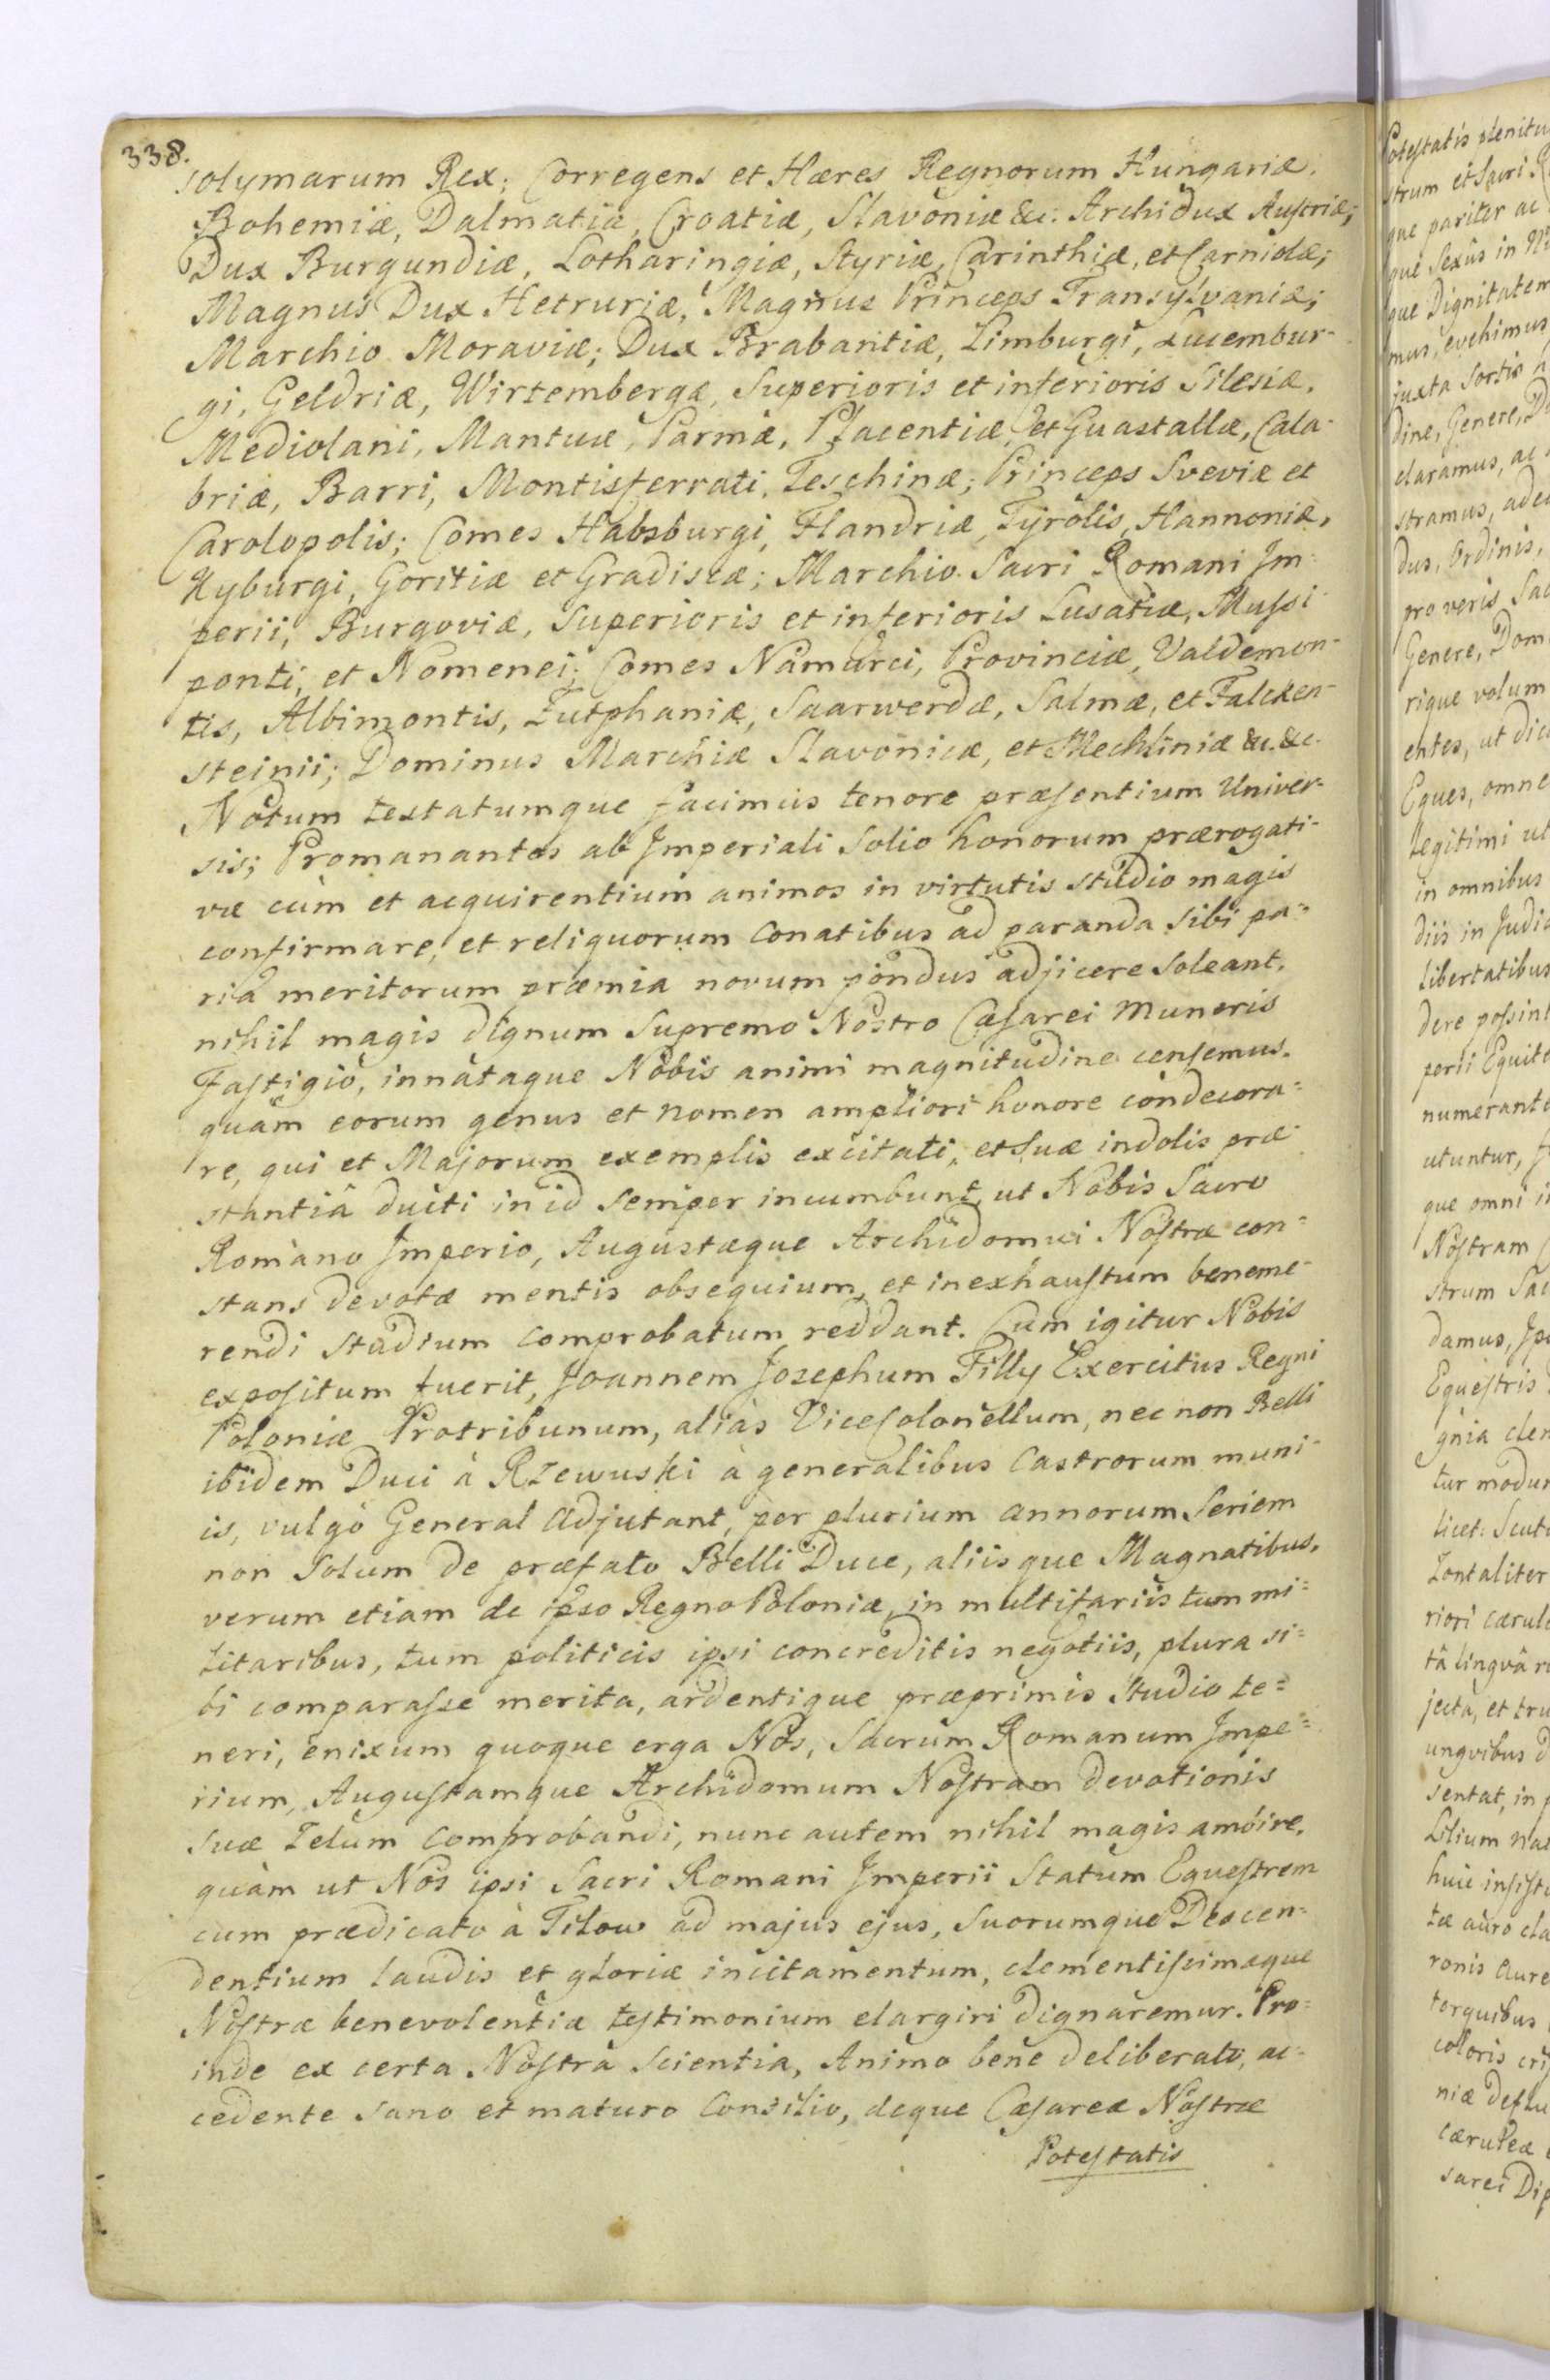 338.
solymarum Rex; Corregens et Hæres Regnorum Hungariæ,
Bohemiæ, Dalmatiæ, Croatiæ, Slavoniæ &c. Archidux Austriæ;
Dux Burgundiæ, Lotharingiæ, Styriæ, Carinthiæ, et Carniolæ;
Magnus Dux Hetruriæ, Magnus Princeps Transylvaniæ;
Marchio Moraviæ; Dux Brabantiæ, Limburgi, Lucembur-
gi, Geldriæ, Wirtembergæ, Superioris et inferioris Silesiæ,
Mediolani, Mantuæ, Parmæ, Placentiæ, et Guastallæ, Cala-
briæ, Barri, Montisferrati, Teschinæ; Princeps Sveviæ et
Carolopolis; Comes Habsburgi, Flandriæ, Tyrolis, Hannoniæ,
Kyburgi, Goritiæ et Gradiscæ; Marchio Sacri Romani Im-
perii, Burgoviæ, Superioris et inferioris Lusatiæ, Mussi-
ponti, et Nomenei; Comes Namurci, Provinciæ, Valdemon-
tis, Albimontis, Zutphaniæ, Saarwerdæ, Salmæ, et Falcken-
steinii; Dominus Marchiæ Slavonicæ, et Mechliniæ &c. &c.
Notum testatumque facimus tenore præsentium Univer-
sis; Promanantes ab Imperiali Solio honorum prærogati-
væ cùm et acquirentium animos in virtutis studio magis
confirmare, et reliquorum conatibus ad paranda sibi pa=
ria meritorum præmia novum pondus adjicere soleant,
nihil magis dignum Supremo Nostro Cæsarei muneris
Fastigio, innataque Nobis animi magnitudine censemus,
quam eorum genus et nomen ampliori honore condecora=
re, qui et Majorum exemplis excitati, et suæ indolis præ-
stantiâ ducti in id semper incumbunt, ut Nobis Sacro
Romano Imperio, Augustæque Archidomui Nostræ con=
stans devotæ mentis obsequium, et inexhaustum beneme-
rendi studium comprobatum reddant. Cum igitur Nobis
expositum fuerit, Joannem Josephum Tilly Exercitus Regni
Poloniæ Protribunum, aliàs Vicecolonellum, nec non Belli
ibidem Duci à Rzewuski à generalibus Castrorum muni-
is, vulgò General Adjutant, per plurium annorum Seriem
non solum de præfato Belli Duce, aliisque Magnatibus,
verum etiam de ipso Regno Poloniæ, in multifariis tum mi=
litaribus, tum politicis ipsi concreditis negotiis, plura si=
bi comparasse merita, ardentique præprimis studio te=
neri, enixum quoque erga Nos, Sacrum Romanum Impe=
rium, Augustamque Archidomum Nostram devotionis
suæ Zelum comprobandi, nunc autem nihil magis ambire,
quàm ut Nos ipsi Sacri Romani Imperii Statum Equestrem
cum prædicato à Tilow ad majus ejus, suorumque Descen-
dentium laudis et gloriæ incitamentum, clementissimæque
Nostræ benevolentiæ testimonium elargiri dignaremur. Pro=
inde ex certa Nostra Scientia, Animo bene deliberato, ac-
cedente sano et maturo Consilio, deque Cæsareæ Nostræ
Potestatis
Potestatis plenitu
strum et Sacri R
que pariter ac
que Sexûs in
que Dignitatem
mus, evehimus
juxta sortis
dine, Genere,
claramus, ac
stramus, adeo
dus, Ordinis,
pro veris Sac
Genere, Dom
rique volum
entes, ut dic
Eques, omne
Legitimi ut
in omnibus
diis in Judic
Libertatibus
dere possint
perii Equit
numerant
utuntur,
que omni
Nostram
strum Sac
damus,
Equestris
gnia cle
tur modu
licet: Scut
Zontaliter
riori cærul
tâ linguâ
jecta, et tru
ungvibus
sentat, in
Lilium na
huic insist
tæ auro cla
ronis aure
torquibus
coloris cri
niæ deflu
cæruleæ
sarei Dip